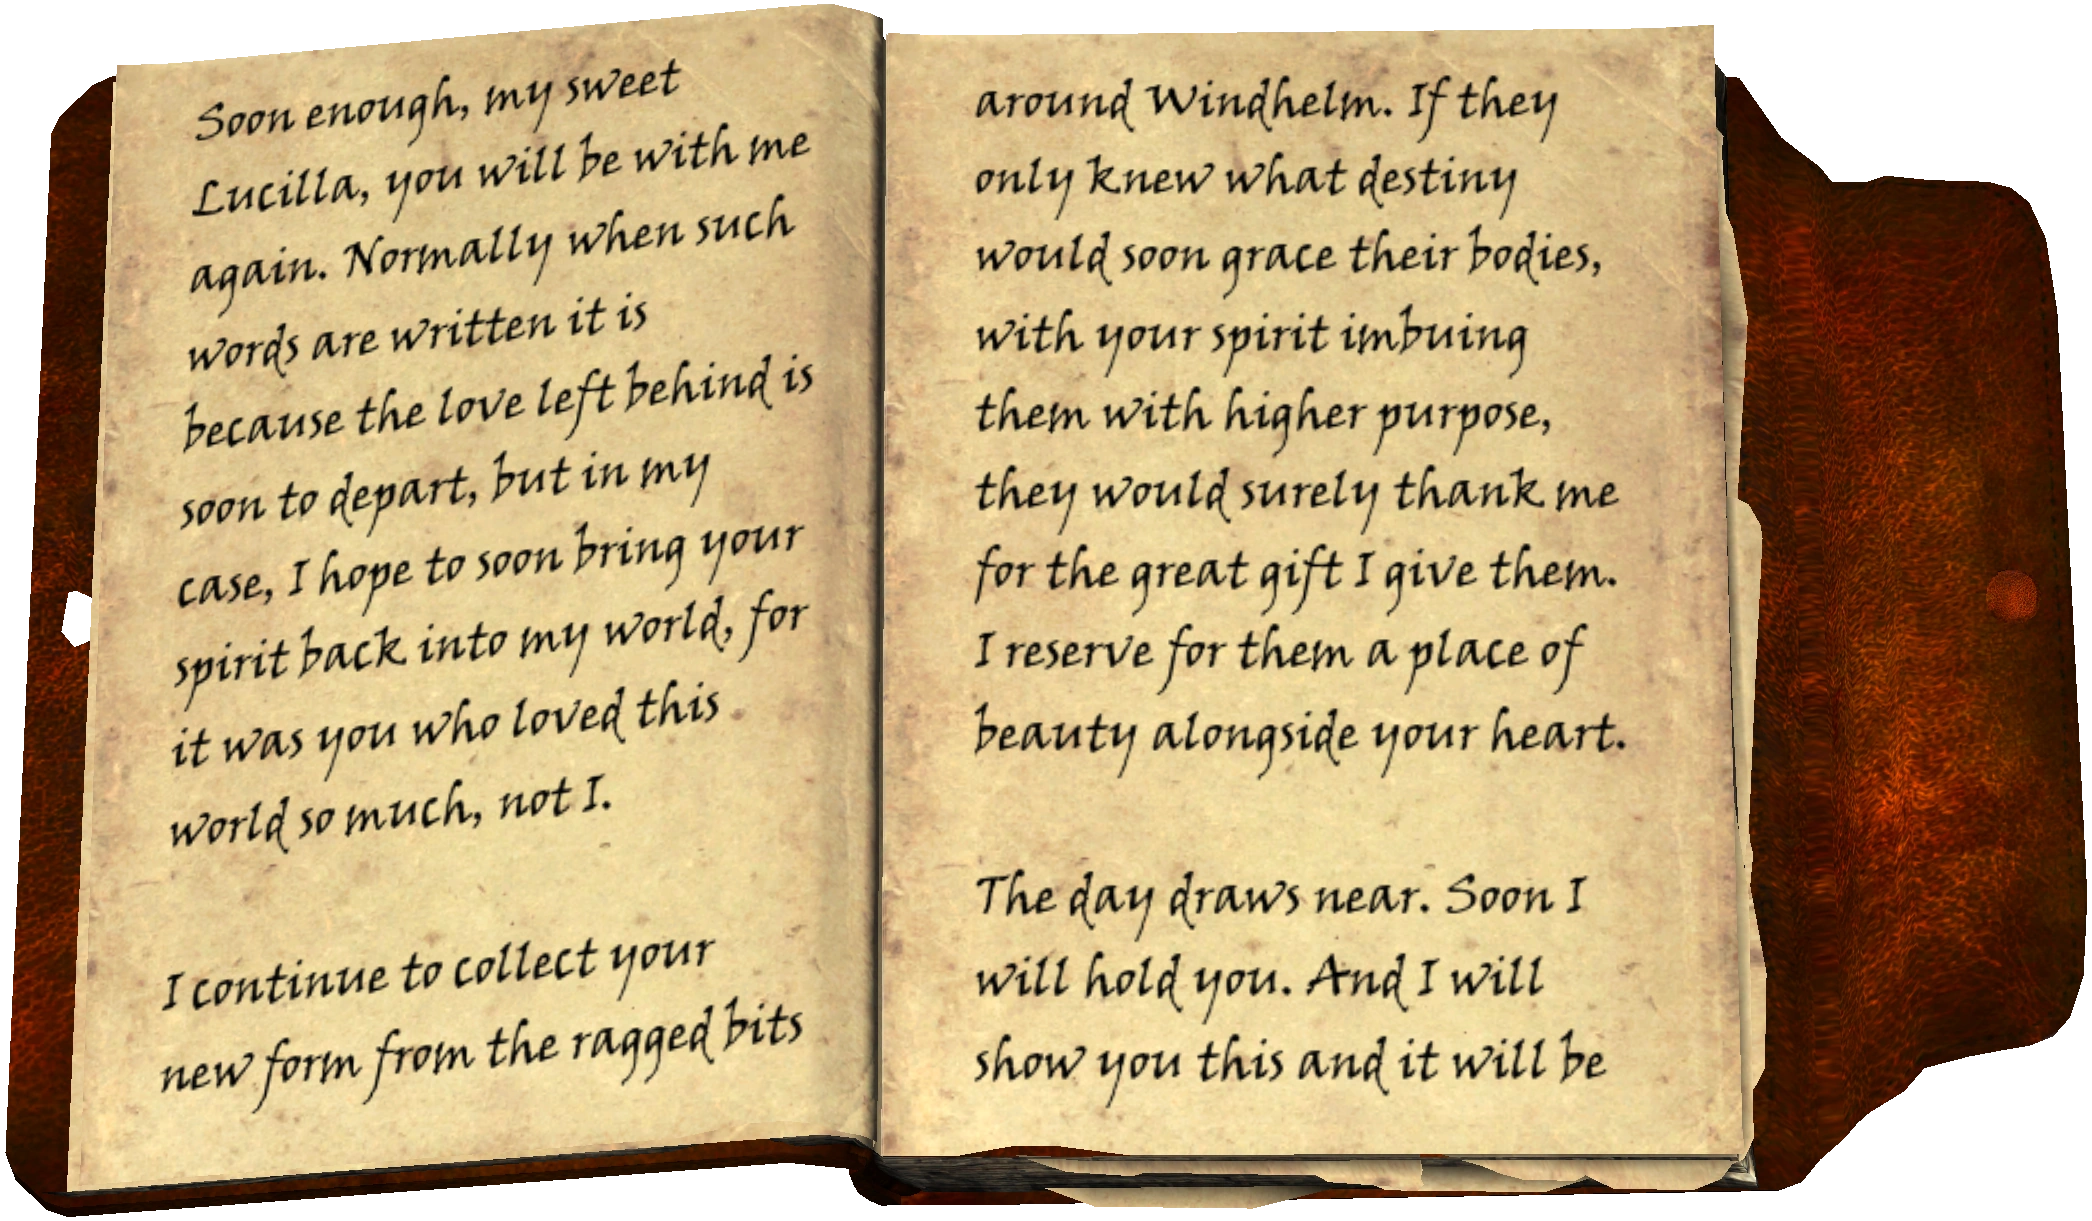 Soon enough, my sweet
Lucilla, you will be with me
again. Normally when such
words are written it is
because the love left behind is
soon to depart, but in my
case, I hope to soon bring your
spirit back into my world, for
it was you who loved this
world so much, not I.
I continue to collect your
new form from the ragged bits
around Windhelm. If they
only knew what destiny
would soon grace their bodies,
with your spirit imbuing
them with higher purpose,
they would surely thank me
for the great gift I give them.
I reserve for them a place of
beauty alongside your heart.
The day draws near. Soon I
will hold you. And I will
show you this and it will be